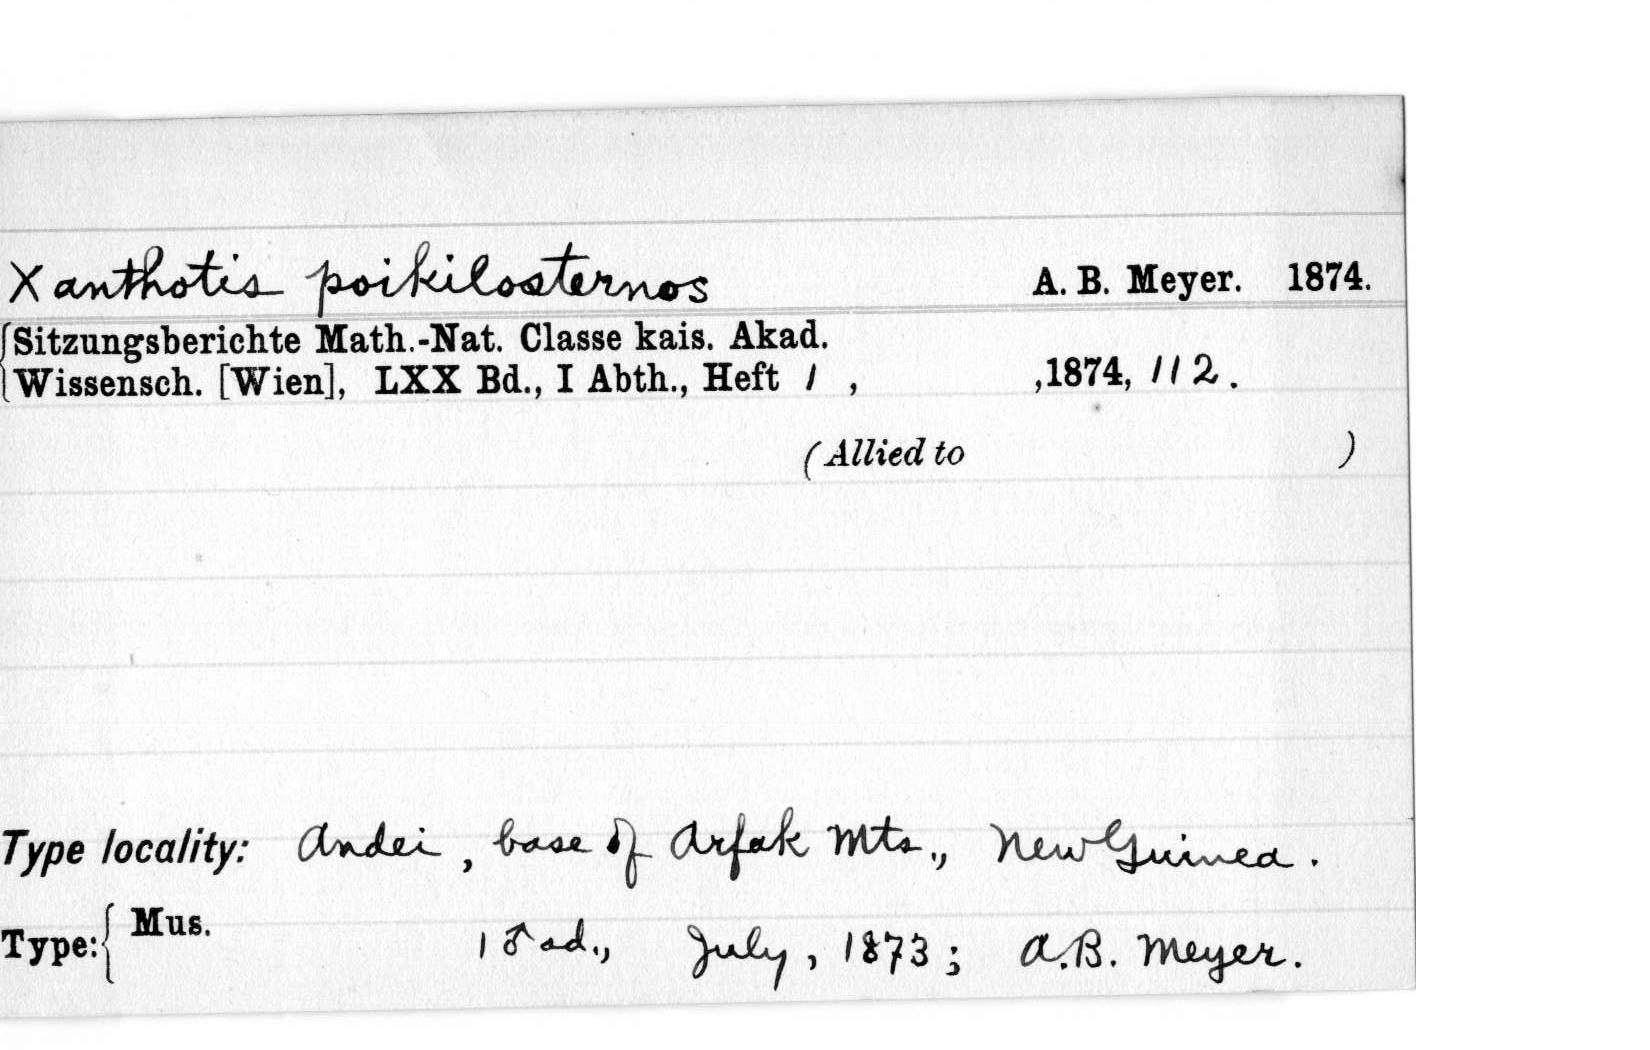 Xanthotis poikilosternos A. B. Meyer. 1874.
Sitzungsberichte Math.-Nat. Classe kais. Akad.
Wissensch. [Wien], LXX Bd., I Abth., Heft 1 , ,1874, 112.
(Allied to )
Type locality: Andei, base of Arfak Mts., New Guinea.
Type: { Mus. 1 ♂ ad., July, 1873; A.B. Meyer.